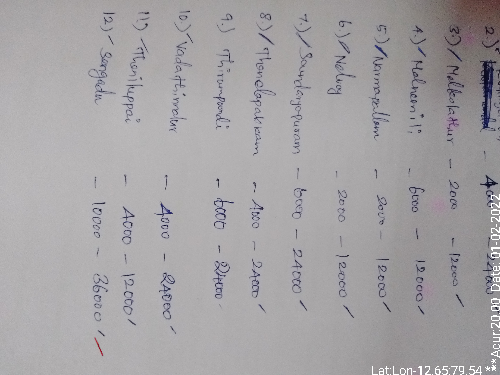 2) - 4000 - 24000
3) Melkolathur - 2000 - 12000
4) Melnemili - 6000 - 12000
5) Narmapallam - 2000 - 12000
6) Neloy - 2000 - 12000
7) Soundaryapuram - 6000 - 24000
8) Thenalapakkam - 4000 - 24000
9) Thirupondi - 6000 - 24000
10) Vadathinalur - 4000 - 24000
11) Theniluppai - 4000 - 12000
12) Sengadu - 10000 - 36000
Lat:Lon-12.65:79.54 **Acur:20.00 Date: 01-02-2022